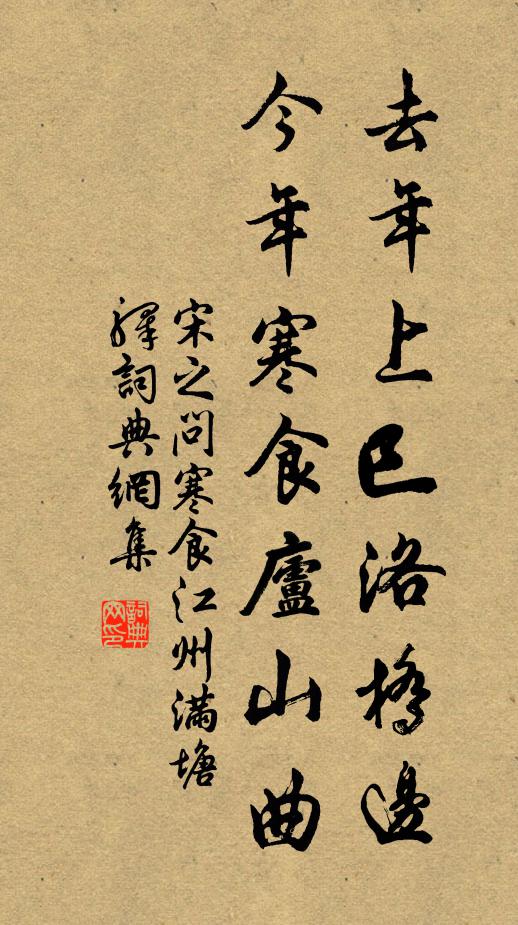 去年上巳洛橋邊
今年寒食廬山曲
宋之問寒食江州滿塘
驛詞典網集
詞典
網印